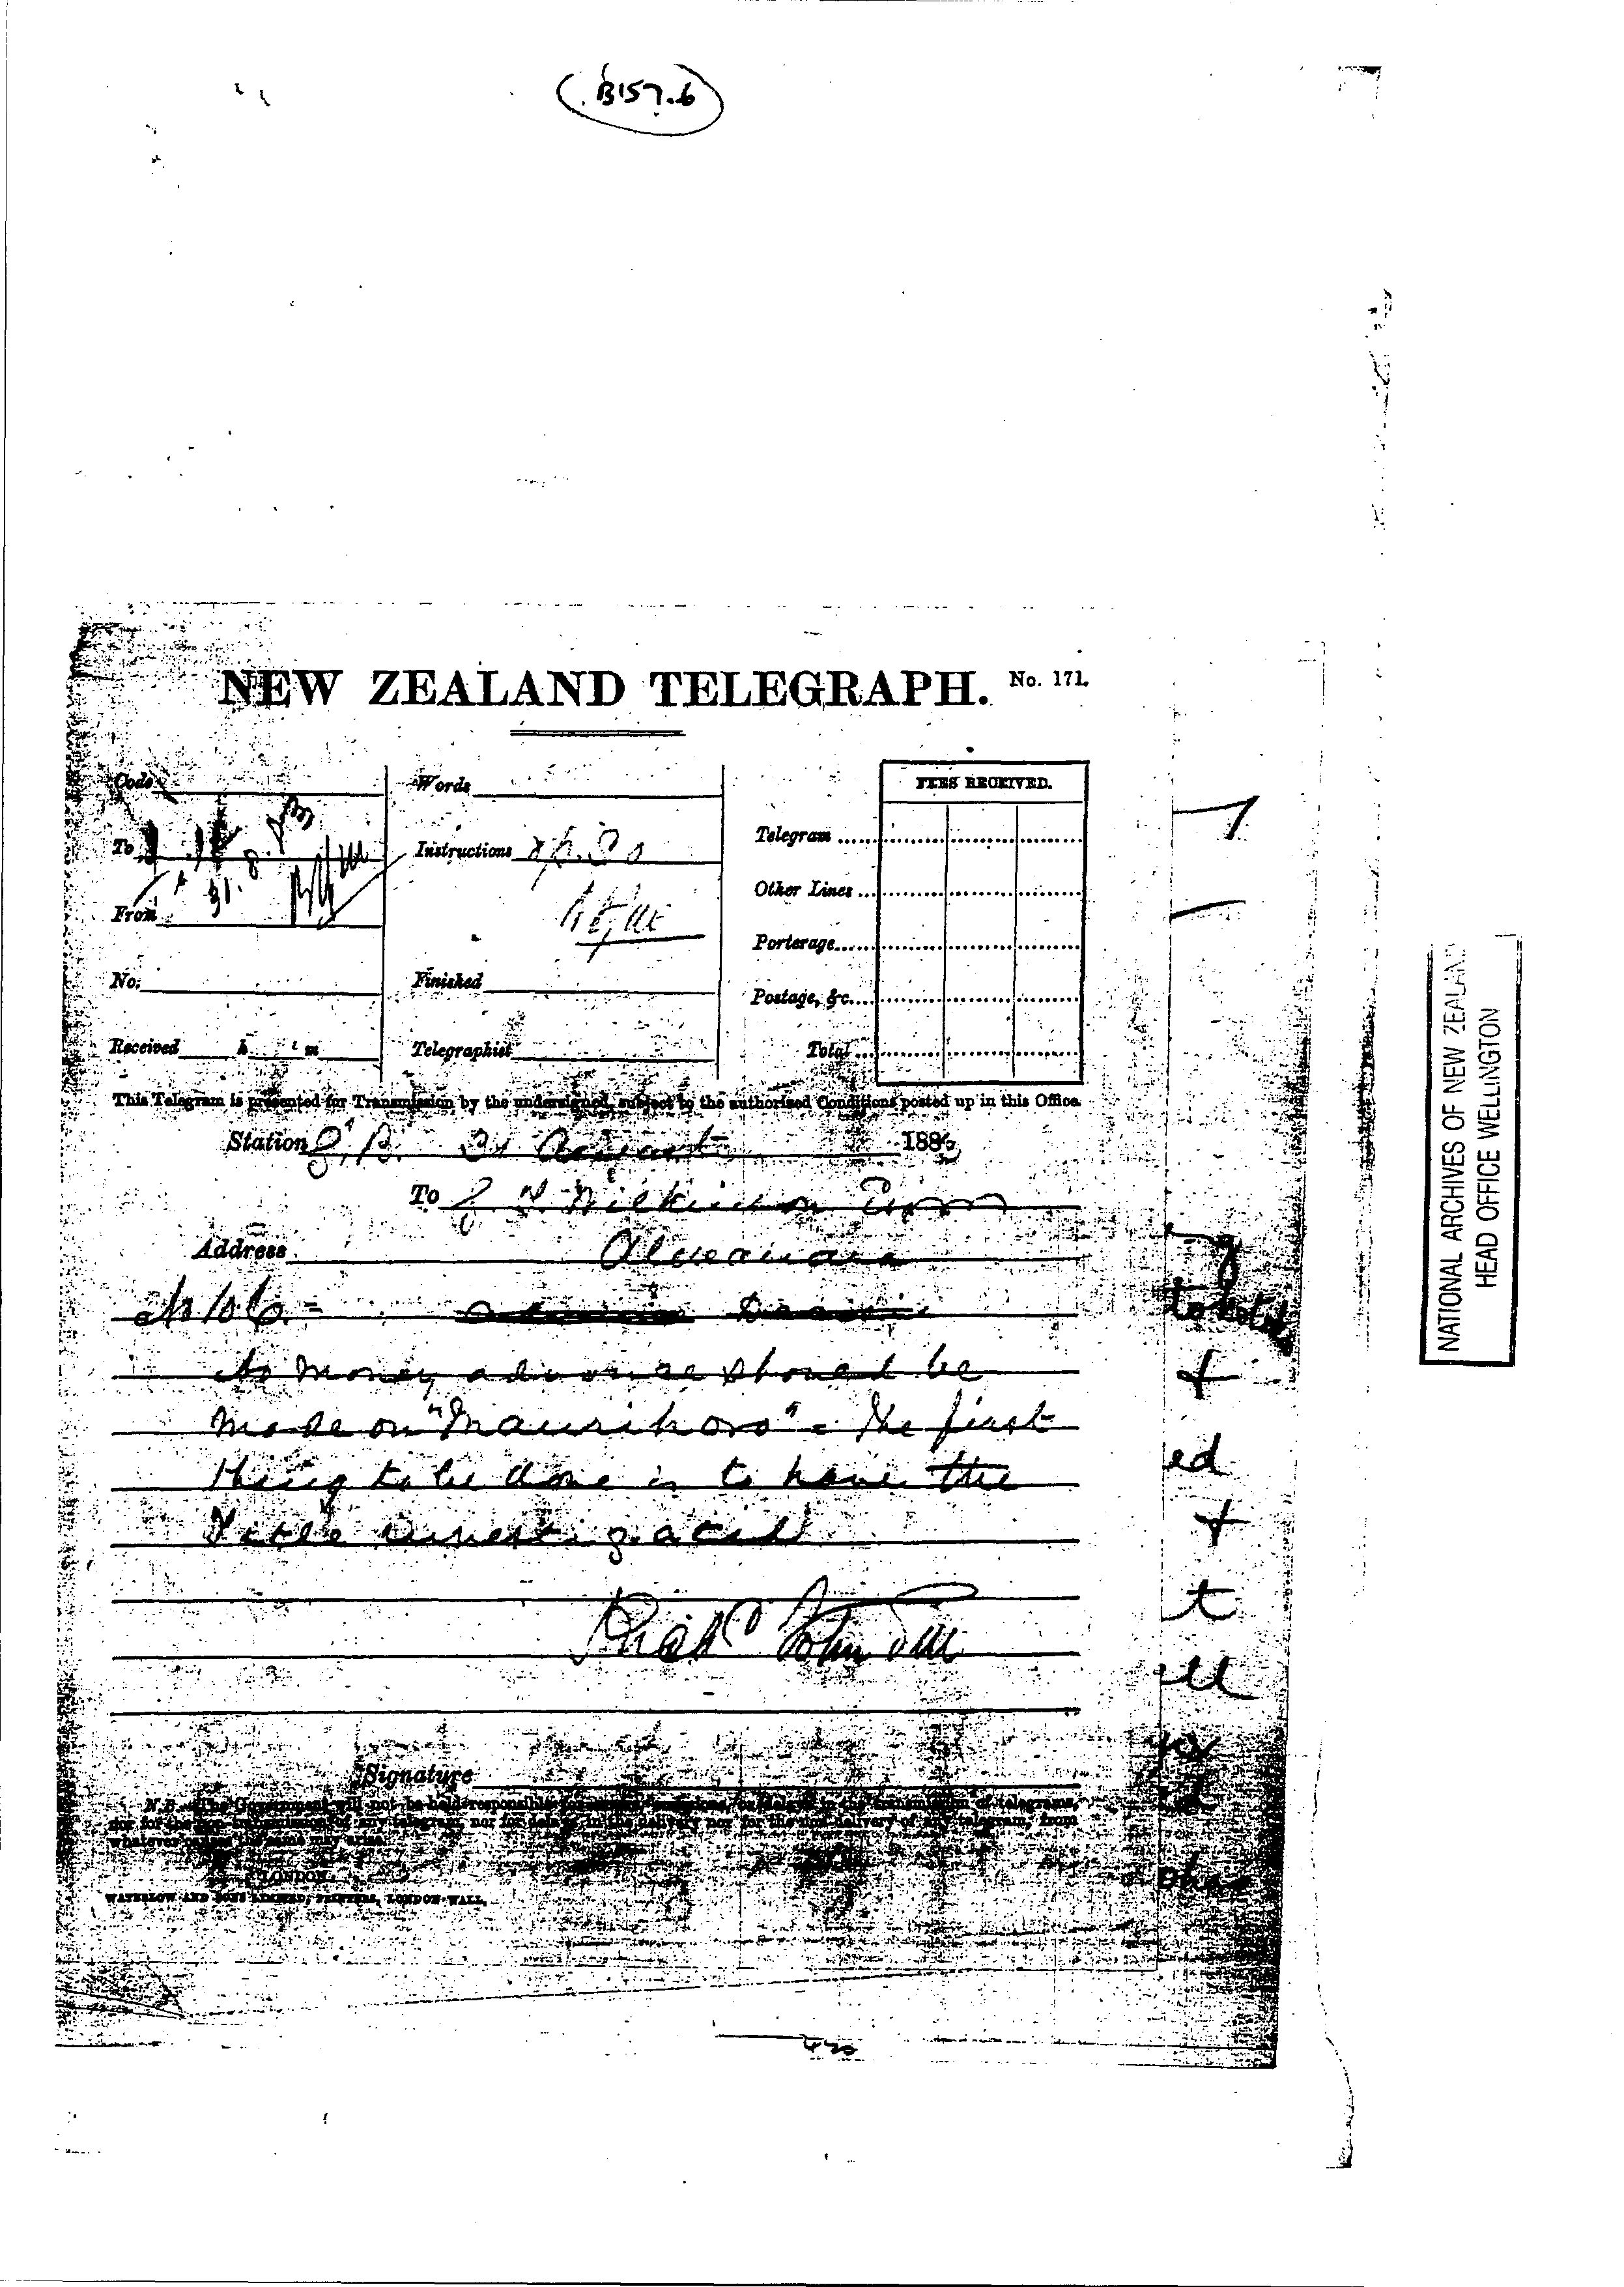 B157.6
NEW ZEALAND TELEGRAPH. No. 171.
Code
Words
FEES RECEIVED.
To
Instructions
Telegram
From
Other Lines
Porterage
No.
Finished
Postage, &c.
Received h. m
Telegraphist
Total
This Telegram is presented for Transmission by the undersigned, subject to the authorised Conditions posted up in this Office.
Station 31 August 1886
To G T Wilkinson Esqre
Address Alexandra
No money advance should be
made on "Maurihoro" - The first
thing to be done is to have the
Title investigated
Signature
N.B.—The Government will not be held responsible for errors, omissions, or delays in the transmission of telegrams,
nor for the non-transmission of any telegram, nor for delays in the delivery nor for the non-delivery of any telegram, from
whatever causes the same may arise.
LONDON
WATERLOW AND SONS LIMITED, PRINTERS, LONDON WALL.
ed
t
ell
NATIONAL ARCHIVES OF NEW ZEALAND
HEAD OFFICE WELLINGTON